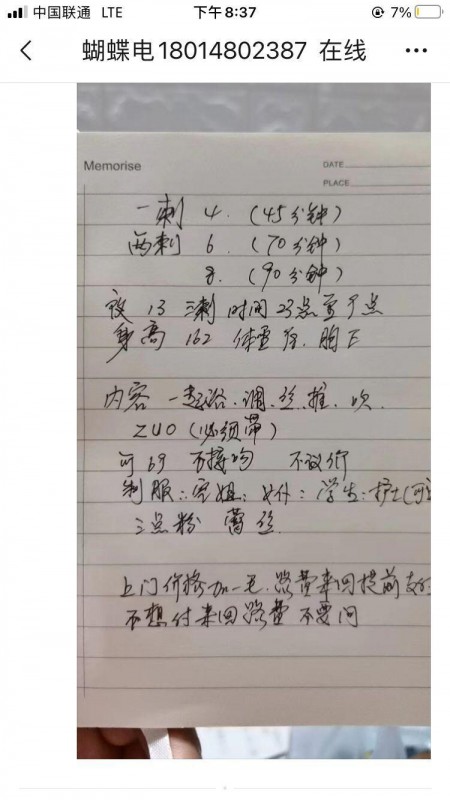 中国联通 LTE 下午8:37 7%
蝴蝶电18014802387 在线
Memorise
DATE
PLACE
一刺 4. (45分钟)
两刺 6. (70分钟)
8. (90分钟)
夜 13 三刺 时间 23点至7点
身高 162 体重 胸E
内容 一起浴.调.丝.推.吹.
ZUO (必须带)
可69 可接吻 不议价
制服:空姐:女仆:学生:护士(可
三点粉 蕾丝
上门价格加一毛.路费来回提前支付
不想付来回路费 不要问